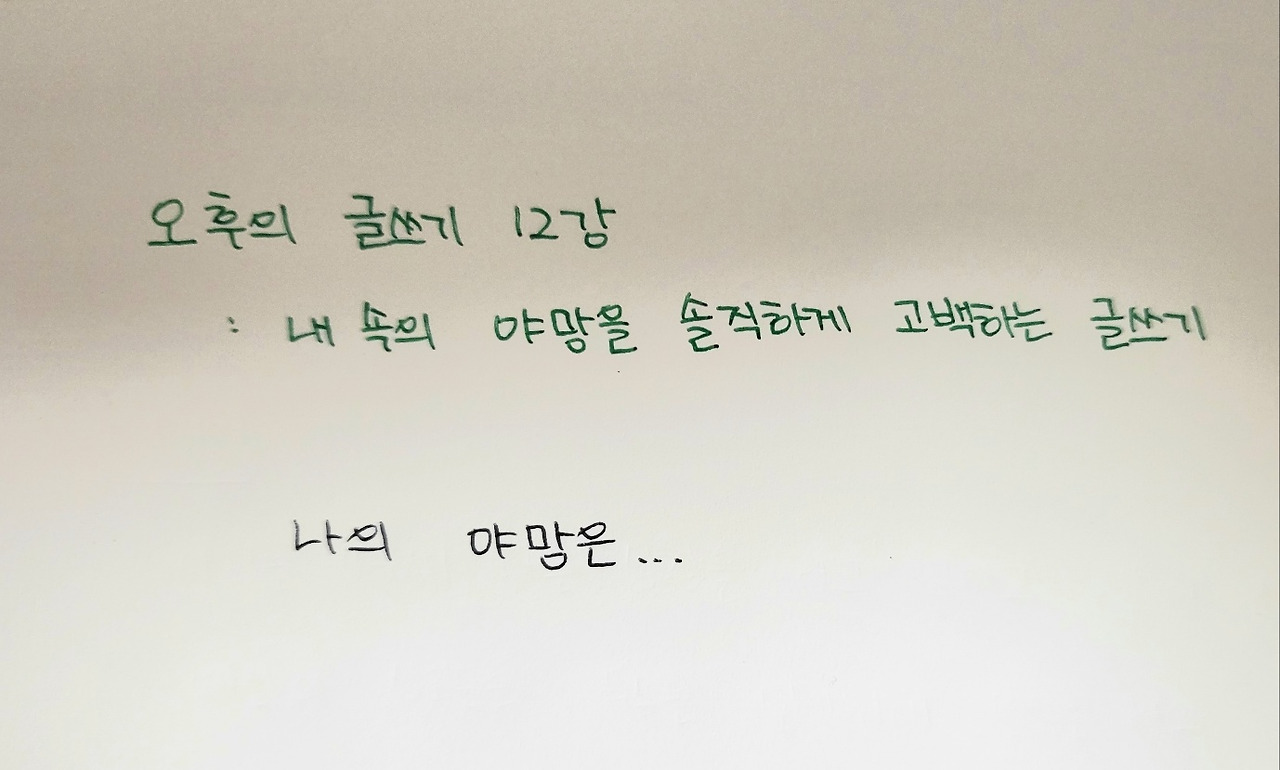 오후의 글쓰기 12강
: 내 속의 야망을 솔직하게 고백하는 글쓰기
나의 야망은...